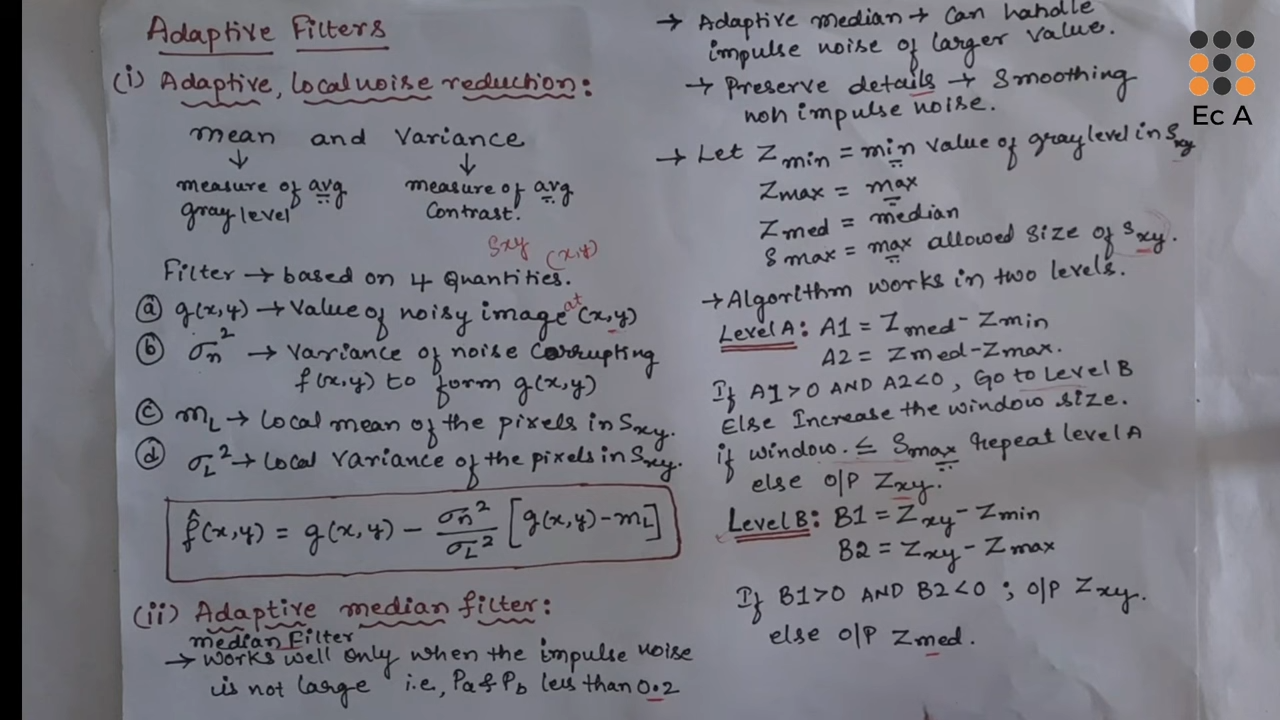 Adaptive Filters
(i) Adaptive, local noise reduction:
mean and Variance
↓ ↓
measure of avg gray level
measure of avg Contrast.
Sxy (x,y)
Filter → based on 4 Quantities.
(a) g(x,y) → Value of noisy image at (x,y)
(b) σn² → Variance of noise Corrupting
f(x,y) to form g(x,y)
(c) mL → Local mean of the pixels in Sxy.
(d) σL² → Local Variance of the pixels in Sxy.
f̂(x,y) = g(x,y) - σn²/σL² [g(x,y) - mL]
(ii) Adaptive median filter:
median Filter
→ Works well only when the impulse noise
is not large i.e, Pa & Pb less than 0.2
→ Adaptive median → Can handle
impulse noise of larger value.
→ Preserve details → Smoothing
non impulse noise.
→ Let Zmin = min value of gray level in Sxy
Zmax = max
Zmed = median
Smax = max allowed size of Sxy.
→ Algorithm works in two levels.
Level A: A1 = Zmed - Zmin
A2 = Zmed - Zmax.
If A1>0 AND A2<0, Go to Level B
Else Increase the window size.
if window. ≤ Smax repeat level A
else O/P Zxy.
Level B: B1 = Zxy - Zmin
B2 = Zxy - Zmax
If B1>0 AND B2<0 ; O/P Zxy.
else O/P Zmed.
Ec A